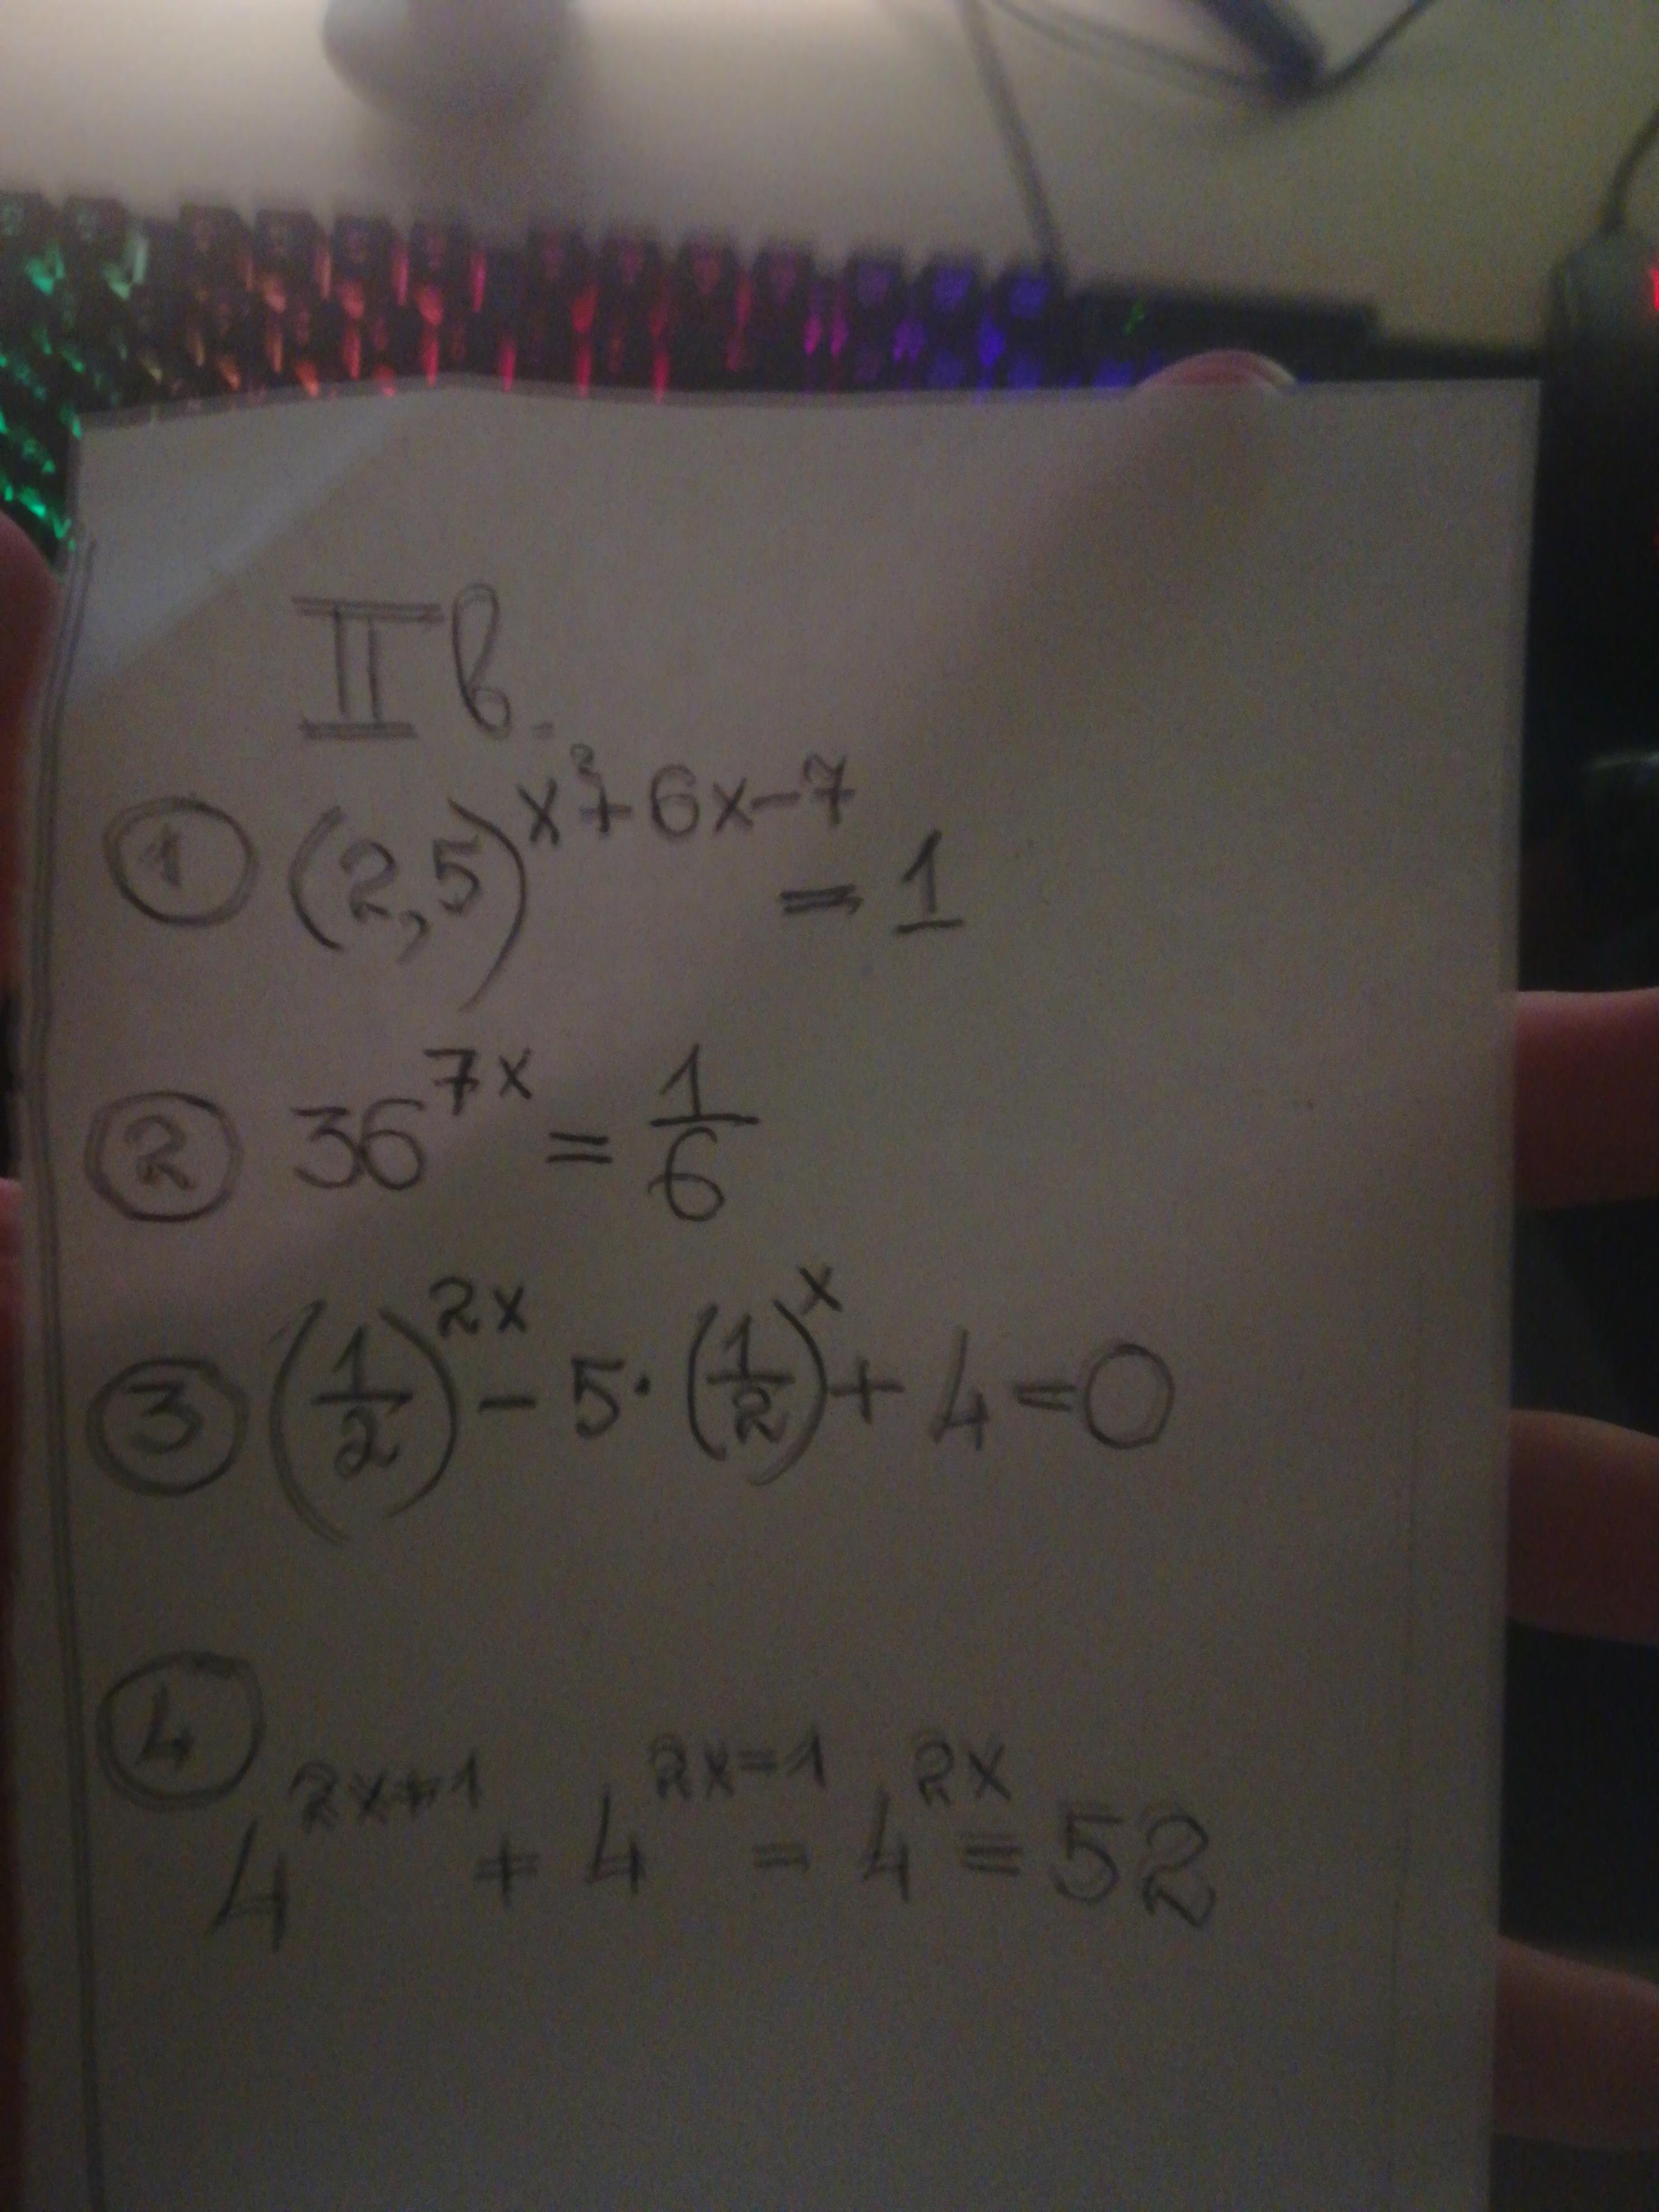 II в.
① (2,5)^{x²+6x-7} = 1
② 36^{7x} = \frac{1}{6}
③ (\frac{1}{2})^{2x} - 5·(\frac{1}{2})^{x} + 4 = 0
④ 4^{2x+1} + 4^{2x=1} - 4^{2x} = 52